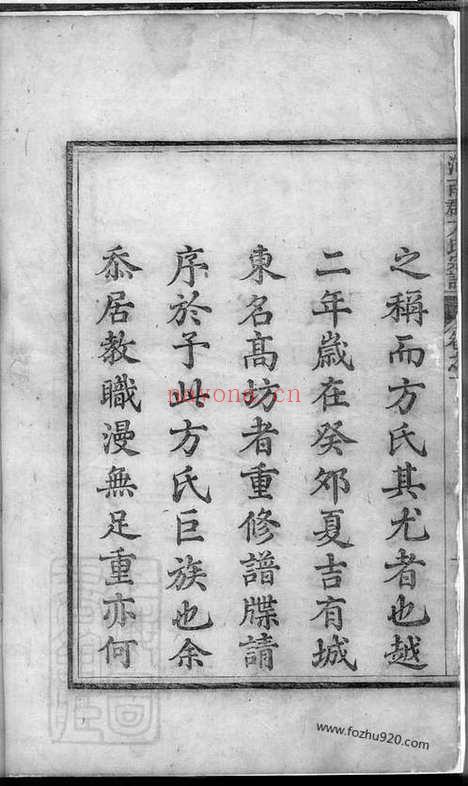 之稱而方氏其尤者也越
二年歲在癸夘夏吉有城
東名髙坊者重修譜牒請
序於予此方氏巨族也余
忝居教職漫無足重亦何
nayona.cn
www.fozhu920.com